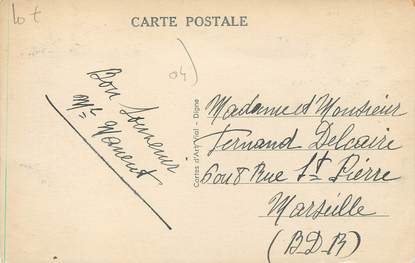 10 €
CARTE POSTALE
04)
Bon Souvenir
Cartes d'Art Vial - Digne
Madame et Monsieur
Fernand Delcaire
6 ou 8 Rue St Pierre
Marseille
(B.D.R)